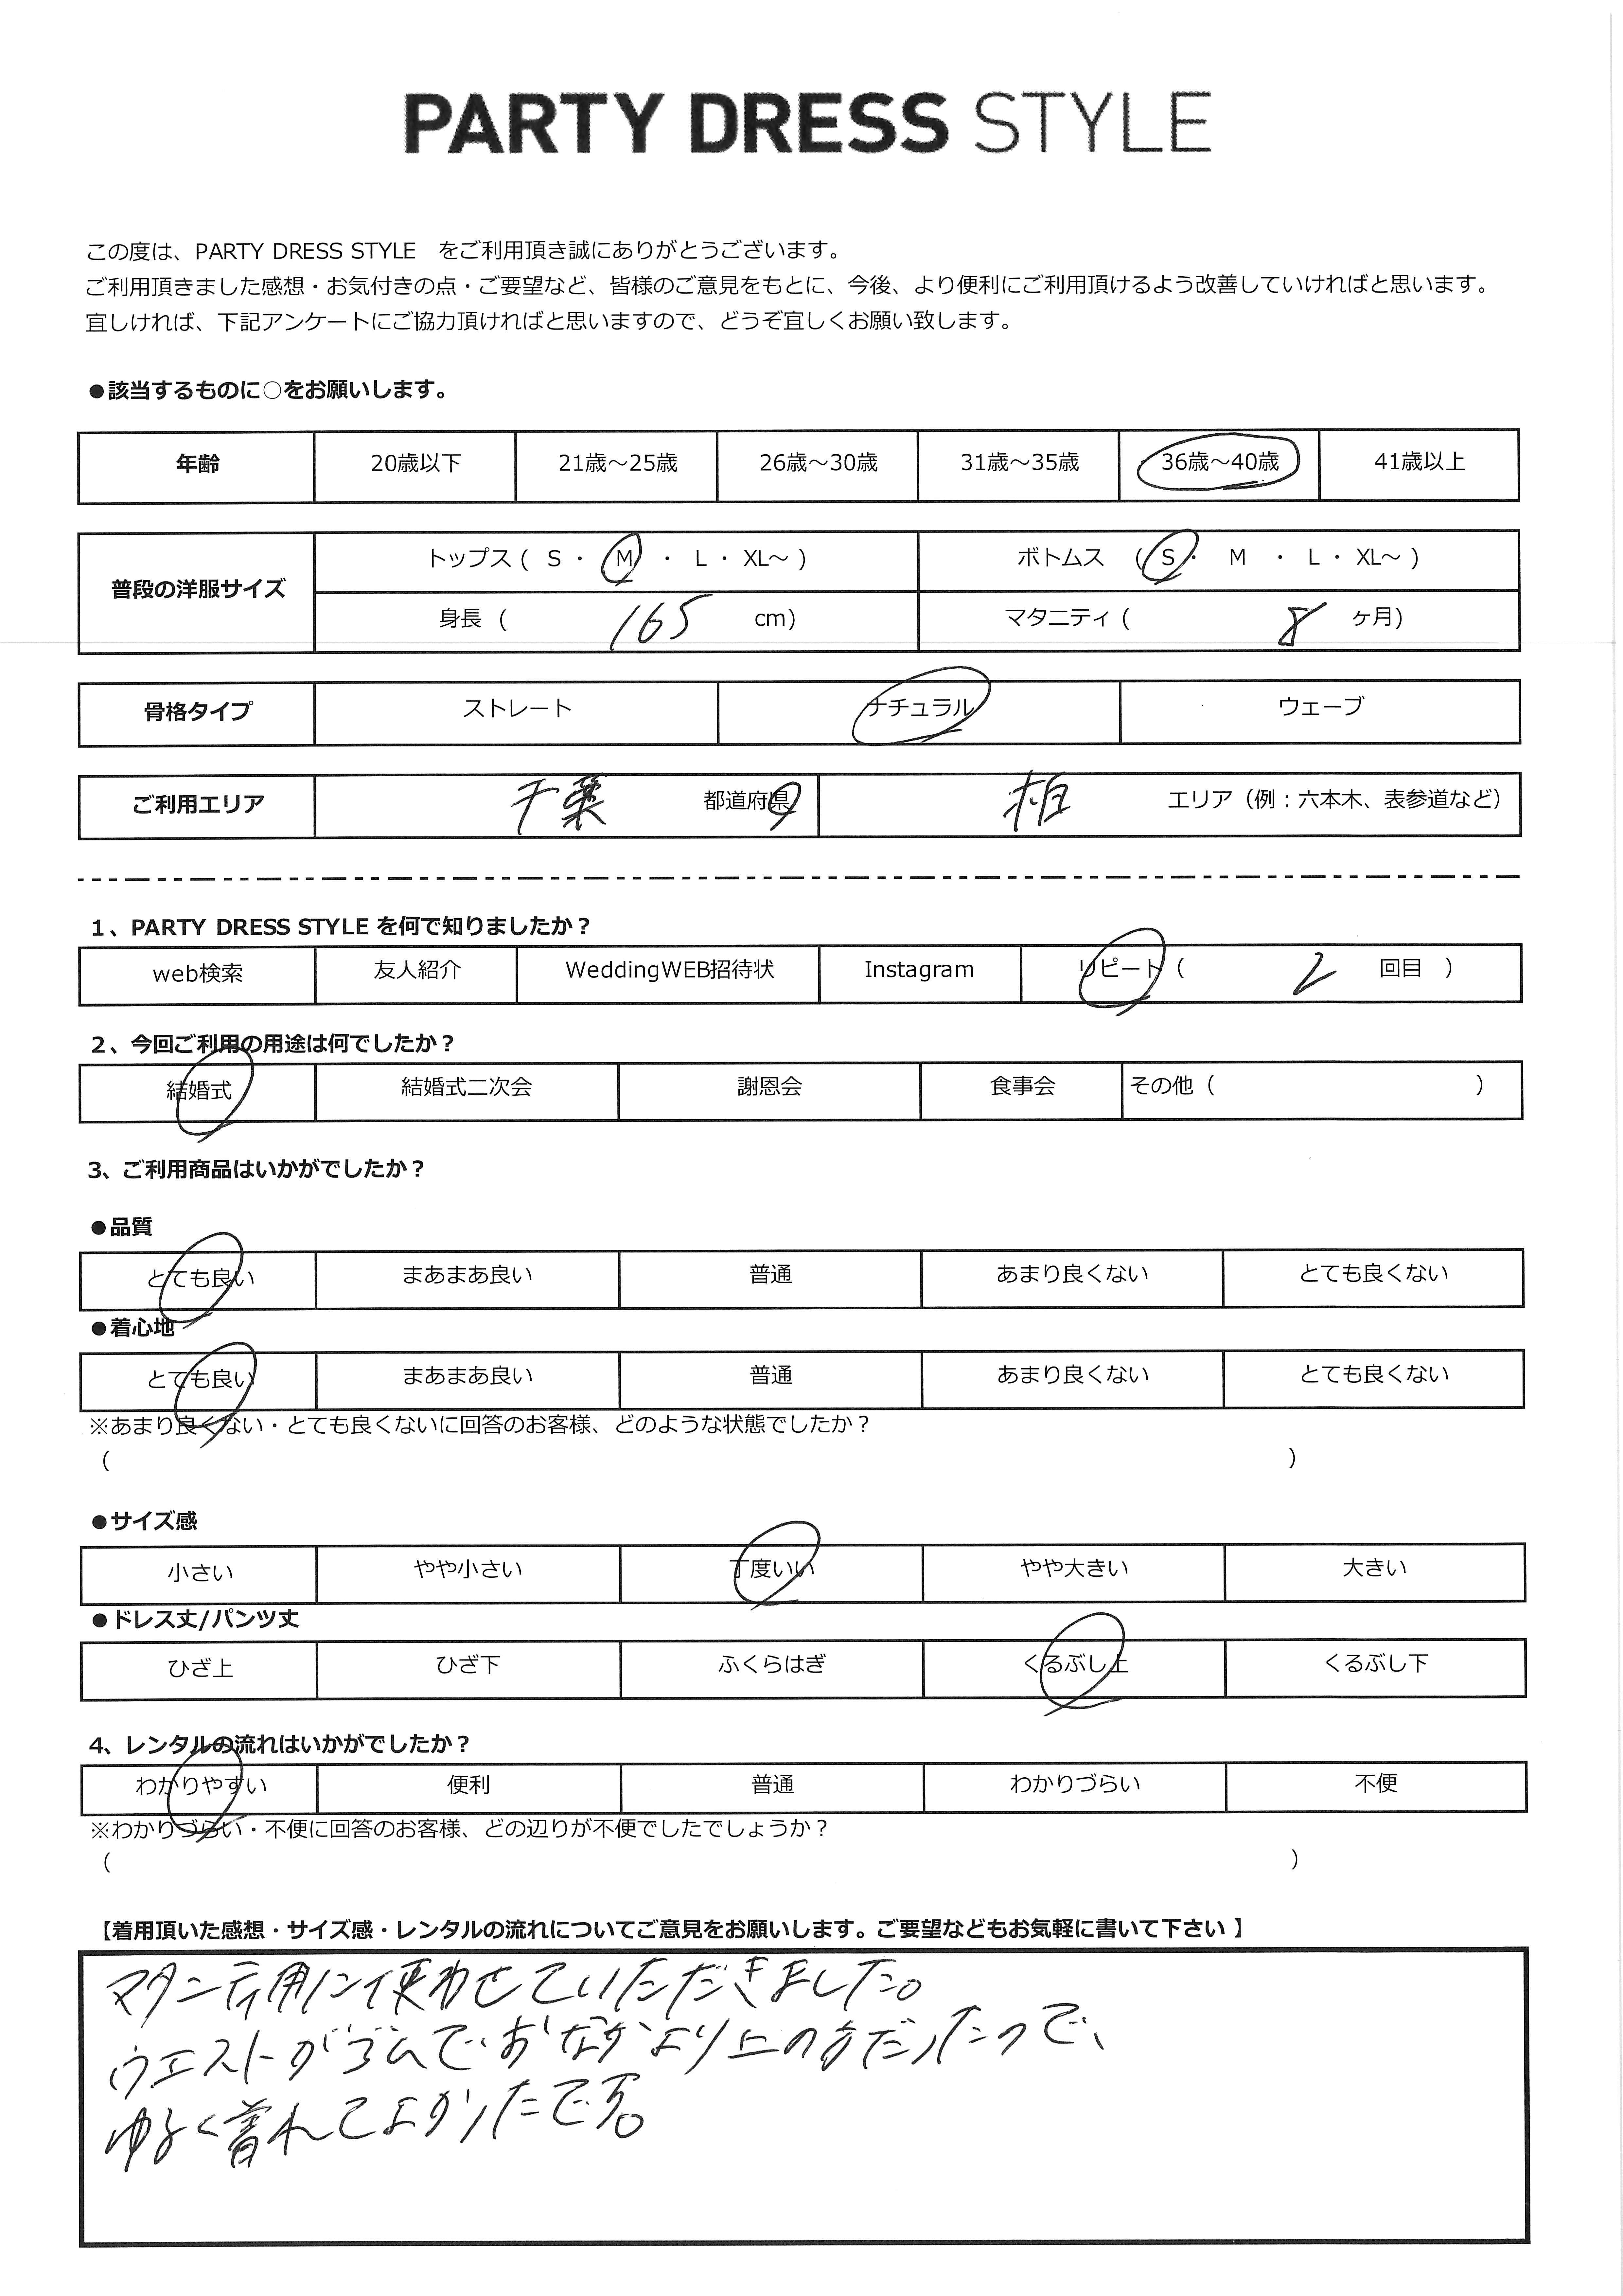 PARTY DRESS STYLE
この度は、PARTY DRESS STYLE　をご利用頂き誠にありがとうございます。
ご利用頂きました感想・お気付きの点・ご要望など、皆様のご意見をもとに、今後、より便利にご利用頂けるよう改善していければと思います。
宜しければ、下記アンケートにご協力頂ければと思いますので、どうぞ宜しくお願い致します。
●該当するものに○をお願いします。
年齢 20歳以下 21歳～25歳 26歳～30歳 31歳～35歳 36歳～40歳 41歳以上
普段の洋服サイズ トップス ( S ・ M ・ L ・ XL～ ) ボトムス ( S ・ M ・ L ・ XL～ )
身長 ( 165 cm) マタニティ ( 8 ヶ月)
骨格タイプ ストレート ナチュラル ウェーブ
ご利用エリア 千葉 都道府県 柏 エリア（例：六本木、表参道など）
1、PARTY DRESS STYLE を何で知りましたか？
web検索 友人紹介 WeddingWEB招待状 Instagram リピート ( 2 回目 )
2、今回ご利用の用途は何でしたか？
結婚式 結婚式二次会 謝恩会 食事会 その他 ( )
3、ご利用商品はいかがでしたか？
●品質
とても良い まあまあ良い 普通 あまり良くない とても良くない
●着心地
とても良い まあまあ良い 普通 あまり良くない とても良くない
※あまり良くない・とても良くないに回答のお客様、どのような状態でしたか？
( )
●サイズ感
小さい やや小さい 丁度いい やや大きい 大きい
●ドレス丈/パンツ丈
ひざ上 ひざ下 ふくらはぎ くるぶし上 くるぶし下
4、レンタルの流れはいかがでしたか？
わかりやすい 便利 普通 わかりづらい 不便
※わかりづらい・不便に回答のお客様、どの辺りが不便でしたでしょうか？
( )
【着用頂いた感想・サイズ感・レンタルの流れについてご意見をお願いします。ご要望などもお気軽に書いて下さい 】
マタニティ用に使わせていただきました。
ウエストがゴムで、おなかより上の方だったので、
ゆるく着れてよかったです。